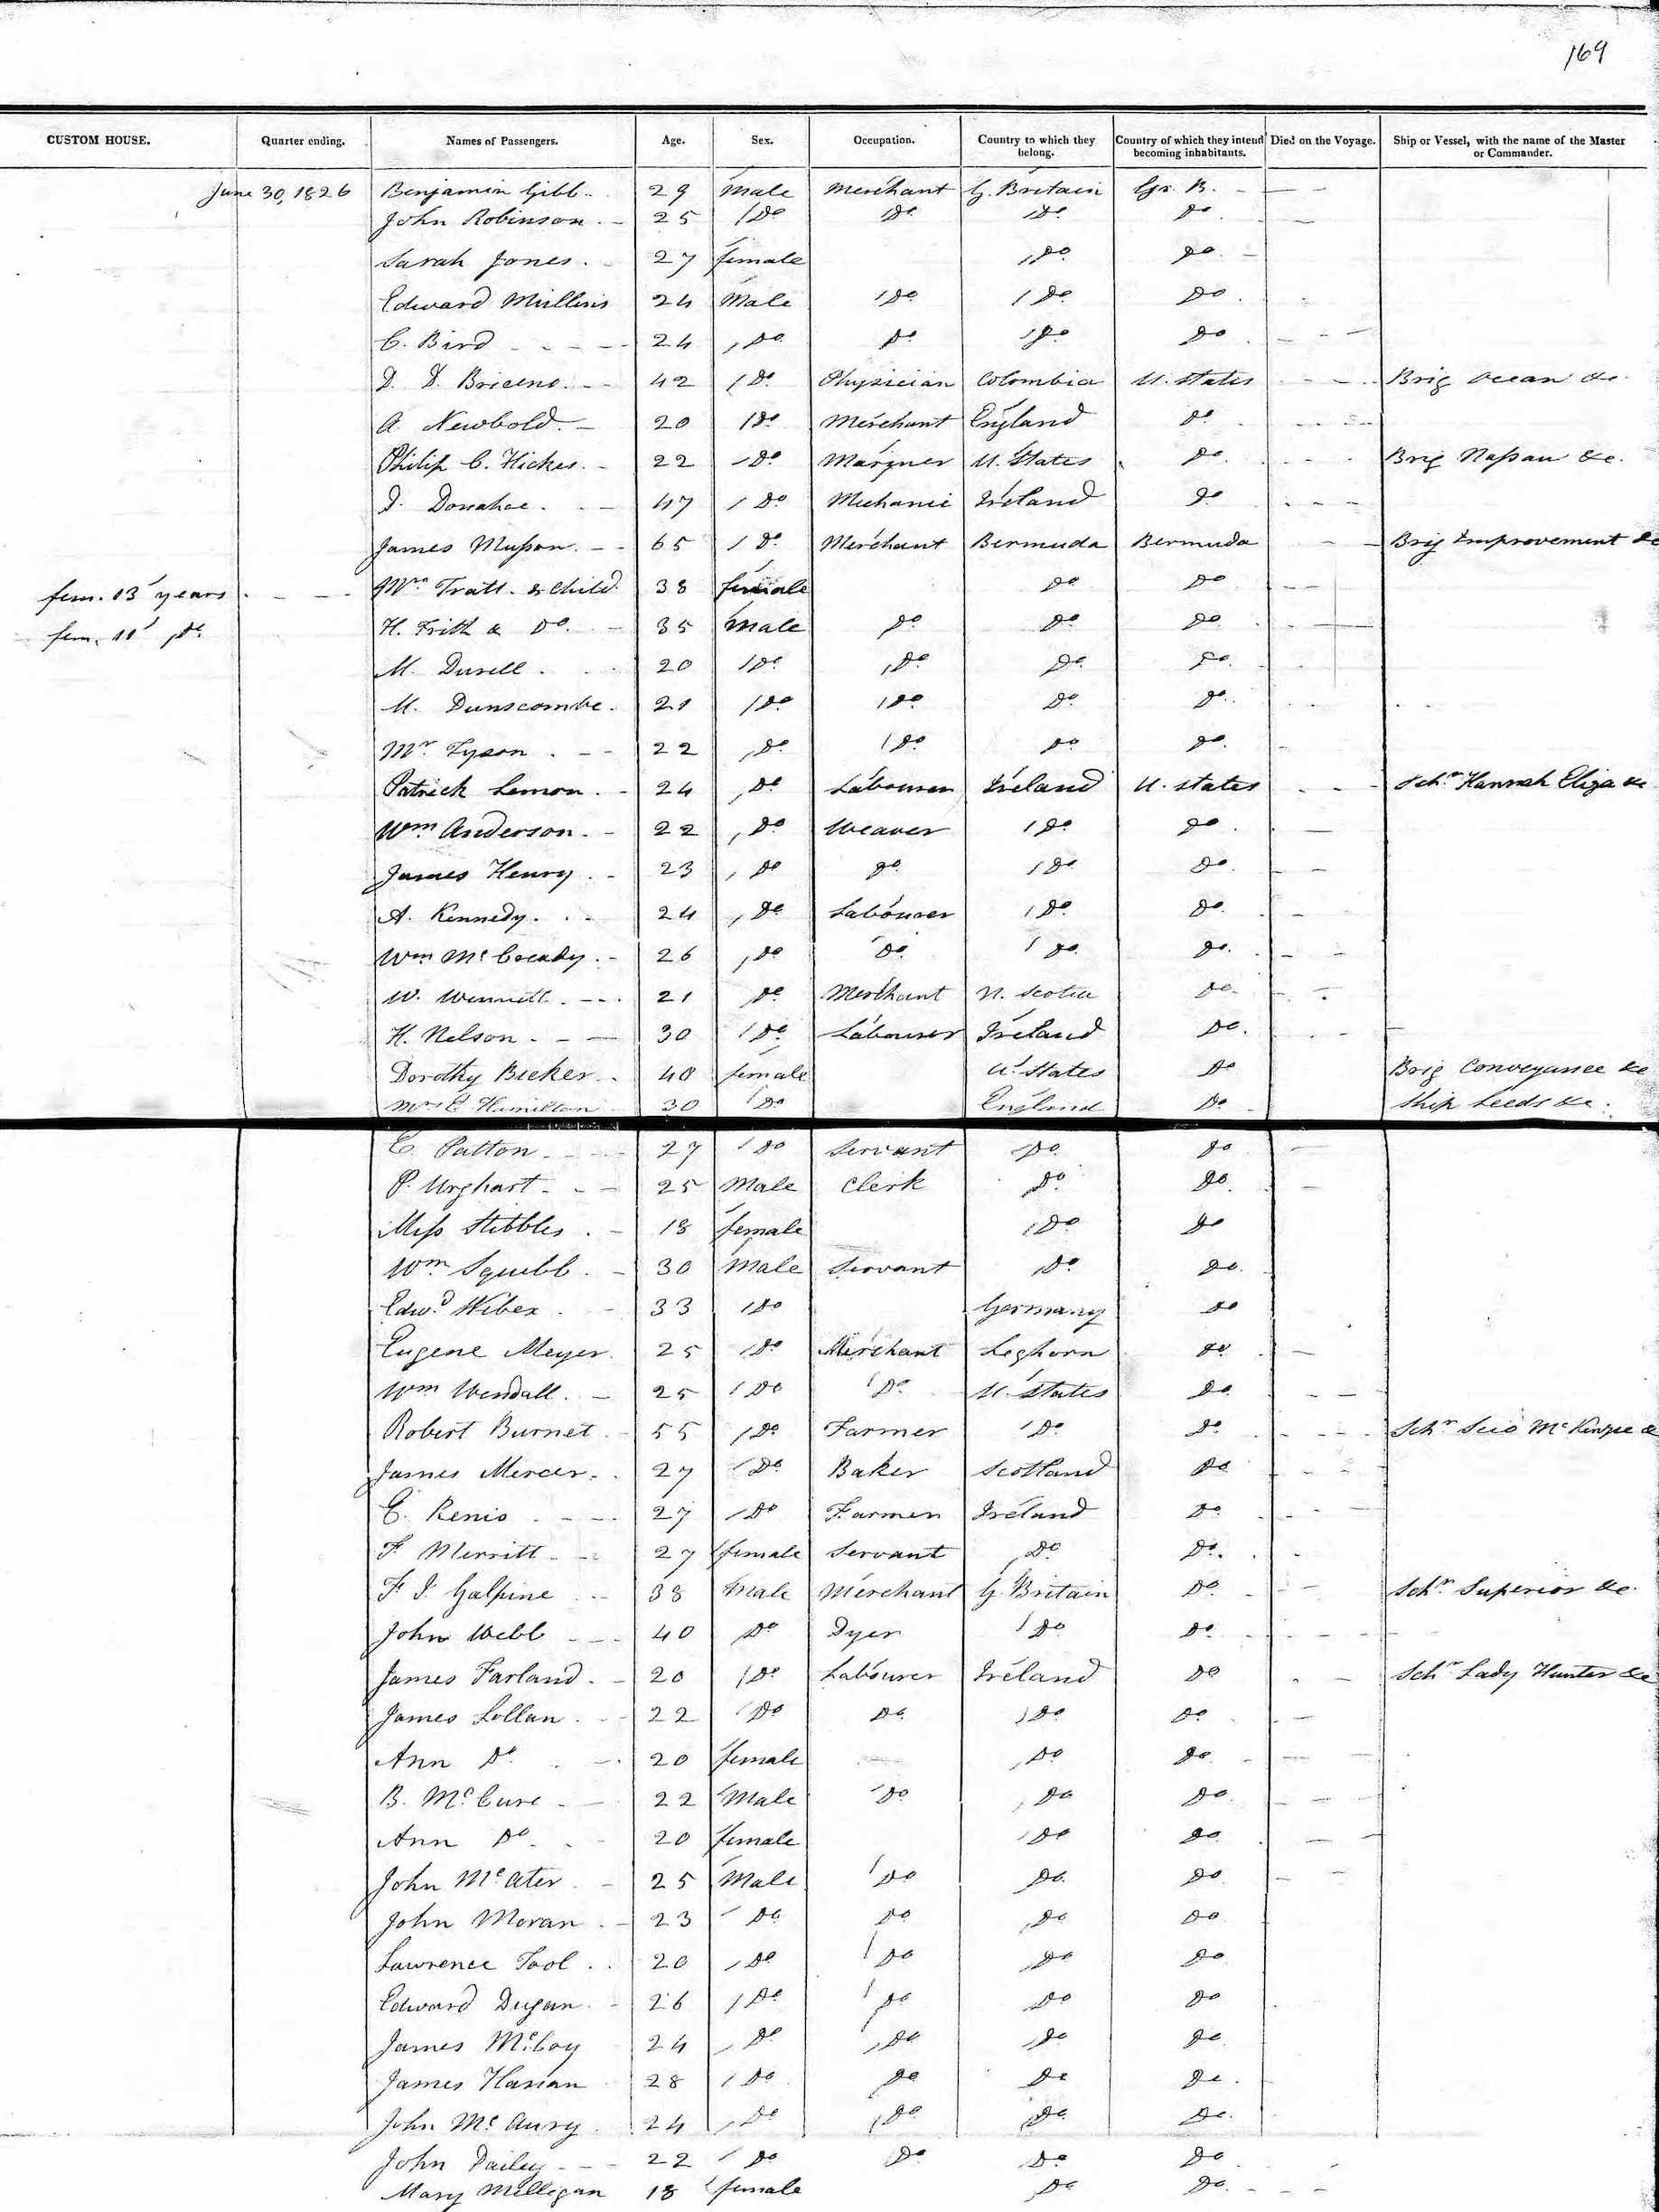 169
CUSTOM HOUSE. Quarter ending. Names of Passengers. Age. Sex. Occupation. Country to which they belong. Country of which they intend becoming inhabitants. Died on the Voyage. Ship or Vessel, with the name of the Master or Commander.
June 30, 1826 Benjamin Gibb 29 Male Merchant G. Britain Gr. B.
John Robinson 25 Do Do Do Do
Sarah Jones 27 female Do Do
Edward Mullins 24 Male Do Do Do
C. Bird 24 Do Do Do Do
D. D. Briceno 42 Do Physician Colombia U. States Brig Ocean &c
A. Newbold 20 Do Merchant England Do
Philip C. Hickes 22 Do Mariner U. States Do Brig Nassau &c.
D. Donahoe 47 Do Mechanic Ireland Do
James Musson 65 Do Merchant Bermuda Bermuda Brig Improvement &c
fem. 13 years Mrs Tratt & Child 38 female Do Do
fem. 11 Do H. Frith & Do 35 Male Do Do Do
M. Durell 20 Do Do Do Do
M. Dunscombe 21 Do Do Do Do
Mr Tyson 22 Do Do Do Do
Patrick Lemon 24 Do Labourer Ireland U. States Schr Hannah Eliza &c
Wm Anderson 22 Do Weaver Do Do
James Henry 23 Do Do Do Do
A. Kennedy 24 Do Labourer Do Do
Wm McCready 26 Do Do Do Do
W. 21 Do Merchant N. Scotia Do
H. Nelson 30 Do Labourer Ireland Do
Dorothy Becker 40 female U. States Do Brig Conveyance &c
Mrs E Hamilton 30 Do England Do Ship Leeds &c.
C. Patton 27 Do Servant Do Do
P. Urghart 25 Male Clerk Do Do
Miss Stibbles 18 female Do Do
Wm Squibb 30 Male Servant Do Do
Edwd Wiber 33 Do Germany Do
Eugene Meyer 25 Do Merchant Leghorn Do
Wm Wendall 25 Do Do U. States Do
Robert Burnet 55 Do Farmer Do Do Schr Scio McKinzee &c
James Mercer 27 Do Baker Scotland Do
C. Renis 27 Do Farmer Ireland Do
F. Merritt 27 female Servant Do Do
F. J. Galpine 38 Male Merchant G. Britain Do Schr Superior &c.
John Webb 40 Do Dyer Do Do
James Farland 20 Do Labourer Ireland Do Schr Lady Hunter &c
James Lollan 22 Do Do Do Do
Ann Do 20 female Do Do
B. McCure 22 Male Do Do Do
Ann Do 20 female Do Do
John McAter 25 Male Do Do Do
John Moran 23 Do Do Do Do
Lawrence Tool 20 Do Do Do Do
Edward Dugan 26 Do Do Do Do
James McCoy 24 Do Do Do Do
James Hanan 28 Do Do Do Do
John McAury 24 Do Do Do Do
John Dailey 22 Do Do Do Do
Mary Milligan 18 female Do Do